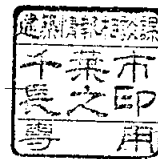 建築情報相談課
千葉市
長之印
專用